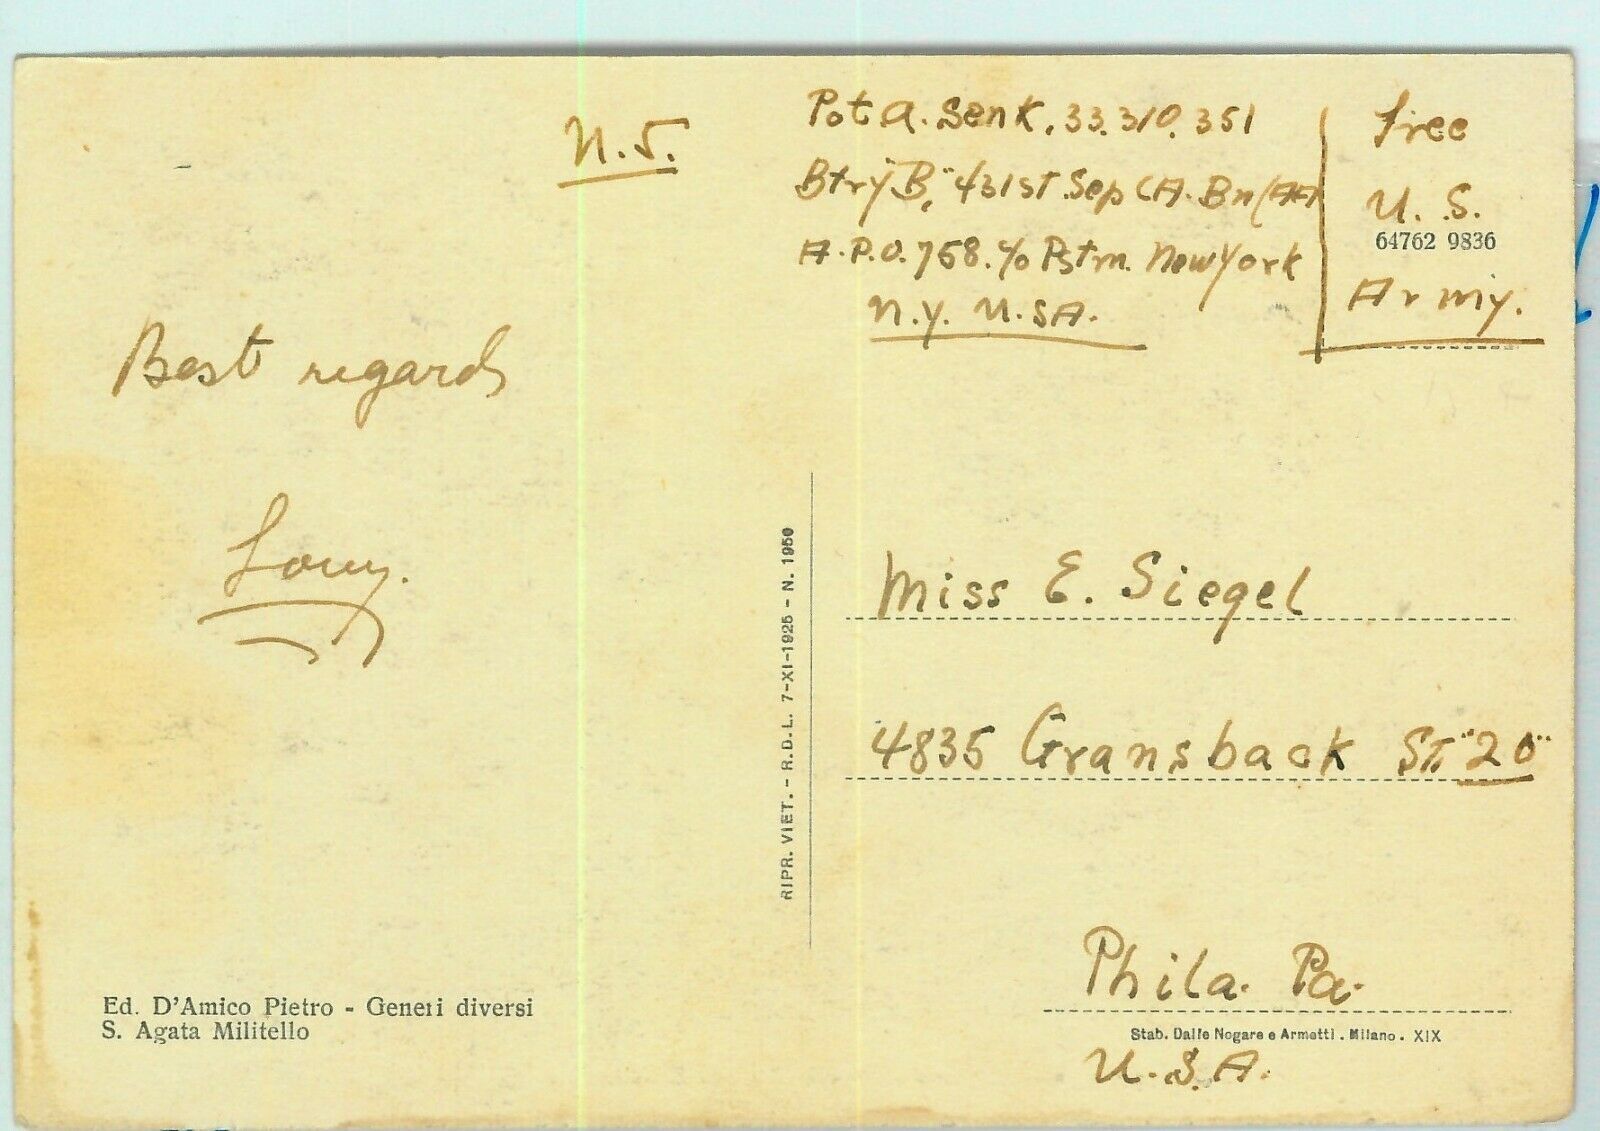 N.J.
Pvt A. Senk. 33.310.351
Btry "B", 431st Sep CA. Bn (AA
A.P.O. 758. c/o Pstm. New York
N.Y. U.SA.
Free
U. S.
64762 9836
Army.
Best regards
RIPR. VIET. - R.D.L. 7-XI-1925 - N. 1950
Miss E. Siegel
4835 Gransback ST. "20"
Phila. Pa.
U.S.A.
Ed. D'Amico Pietro - Generi diversi
S. Agata Militello
Stab. Dalle Nogare e Armetti . Milano . XIX